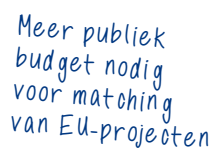 Meer publiek
budget nodig
voor matching
van EU-projecten